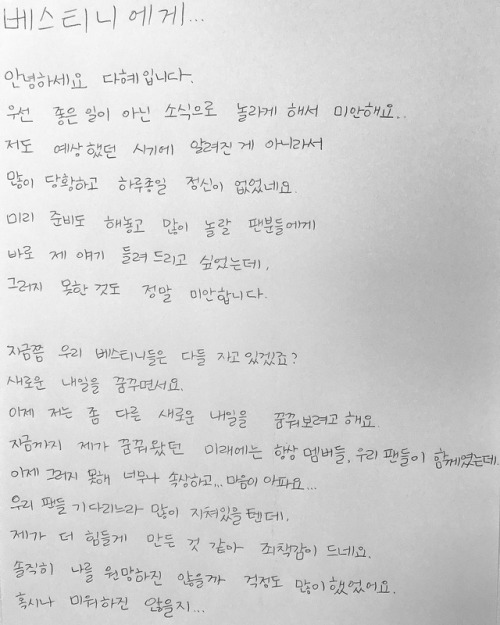 베스티니에게...
안녕하세요 다혜입니다.
우선 좋은 일이 아닌 소식으로 놀라게 해서 미안해요..
저도 예상했던 시기에 알려진 게 아니라서
많이 당황하고 하루종일 정신이 없었네요.
미리 준비도 해놓고 많이 놀랄 팬분들에게
바로 제 얘기 들려 드리고 싶었는데,
그러지 못한 것도 정말 미안합니다.
지금쯤 우리 베스티니들은 다들 자고 있겠죠?
새로운 내일을 꿈꾸면서요.
이제 저는 좀 다른 새로운 내일을 꿈꿔보려고 해요.
지금까지 제가 꿈꿔왔던 미래에는 항상 멤버들, 우리 팬들이 함께였는데
이제 그러지 못해 너무나 속상하고... 마음이 아파요...
우리 팬들 기다리느라 많이 지쳐있을텐데,
제가 더 힘들게 만든 것 같아 죄책감이 드네요.
솔직히 나를 원망하진 않을까 걱정도 많이 했었어요.
혹시나 미워하진 않을지...